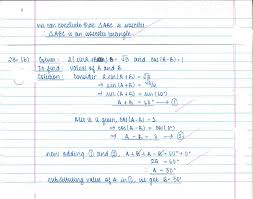 we can conclude that △ABC is isosceles
△ABC is an isosceles triangle.
28. (b) Given: 2 sin(A+B) = √3 and cos(A-B) = 1
To find: values of A and B
Solution: Consider 2 sin(A+B) = √3
⇒ sin(A+B) = √3/2
⇒ sin(A+B) = sin(60°)
A + B = 60° → ①
Also it is given, cos(A-B) = 1.
⇒ cos(A-B) = cos(0°)
⇒ A - B = 0 → ②
now adding ① and ②, A+B+A-B = 60°+0°
2A = 60°
A = 30°
substituting value of A in ①, we get B = 30°